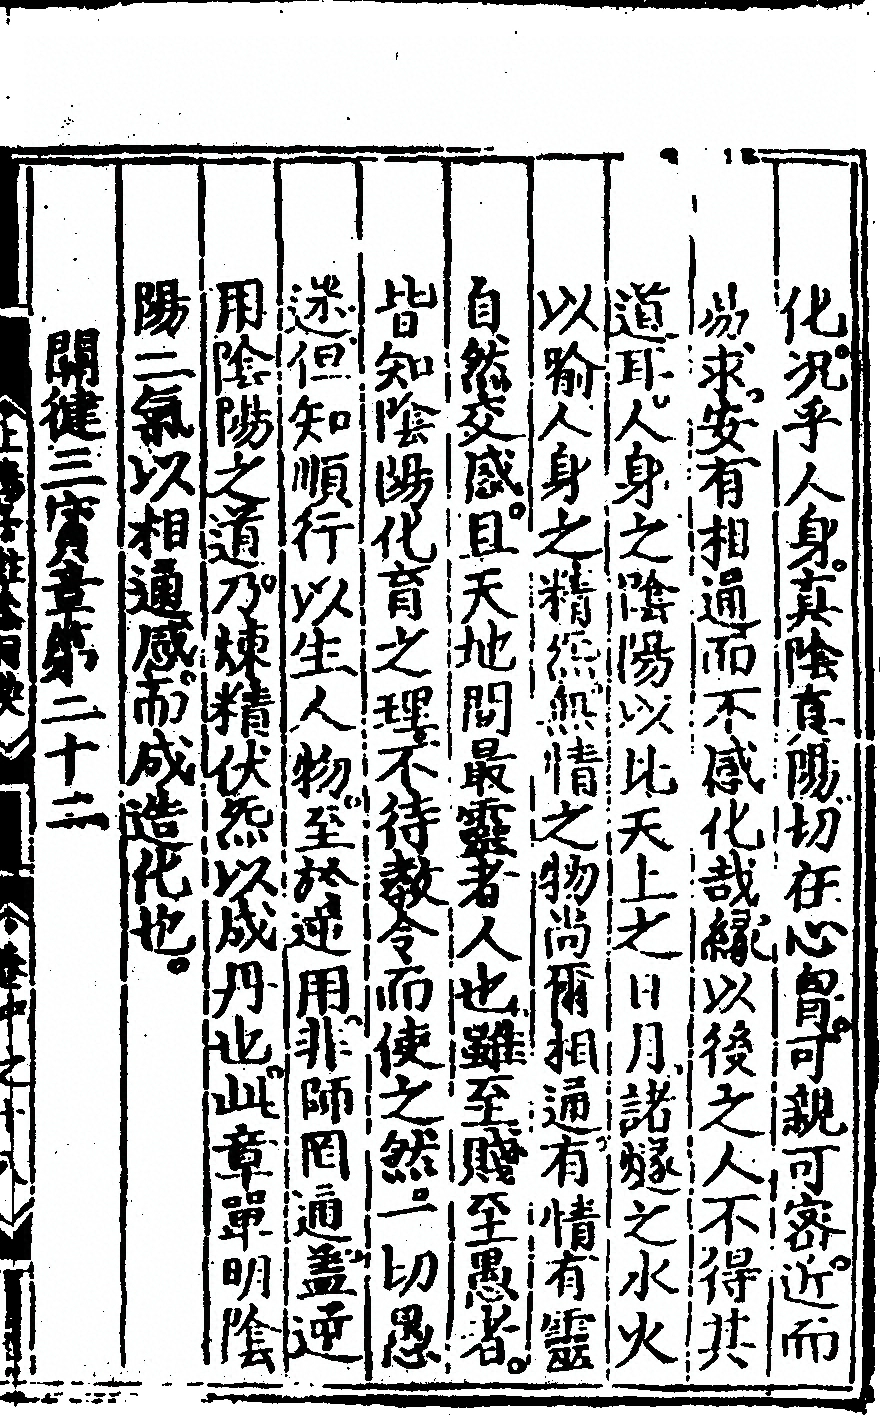 化况乎人身真陰真陽切在心胷可親可密近而
易求安有相通而不感化哉縁以後之人不得其
道耳人身之陰陽以比天上之日月諸燧之水火
以喻人身之精炁無情之物尚爾相通有情有靈
自然交感且天地間最靈者人也雖至賤至愚者
皆知陰陽化育之理不待教令而使之然一切愚
迷但知順行以生人物至於逆用非師罔通蓋逆
用陰陽之道乃煉精伏炁以成丹也此章單明陰
陽二氣以相通感而成造化也
關鍵三寳章第二十二
卷中之十八